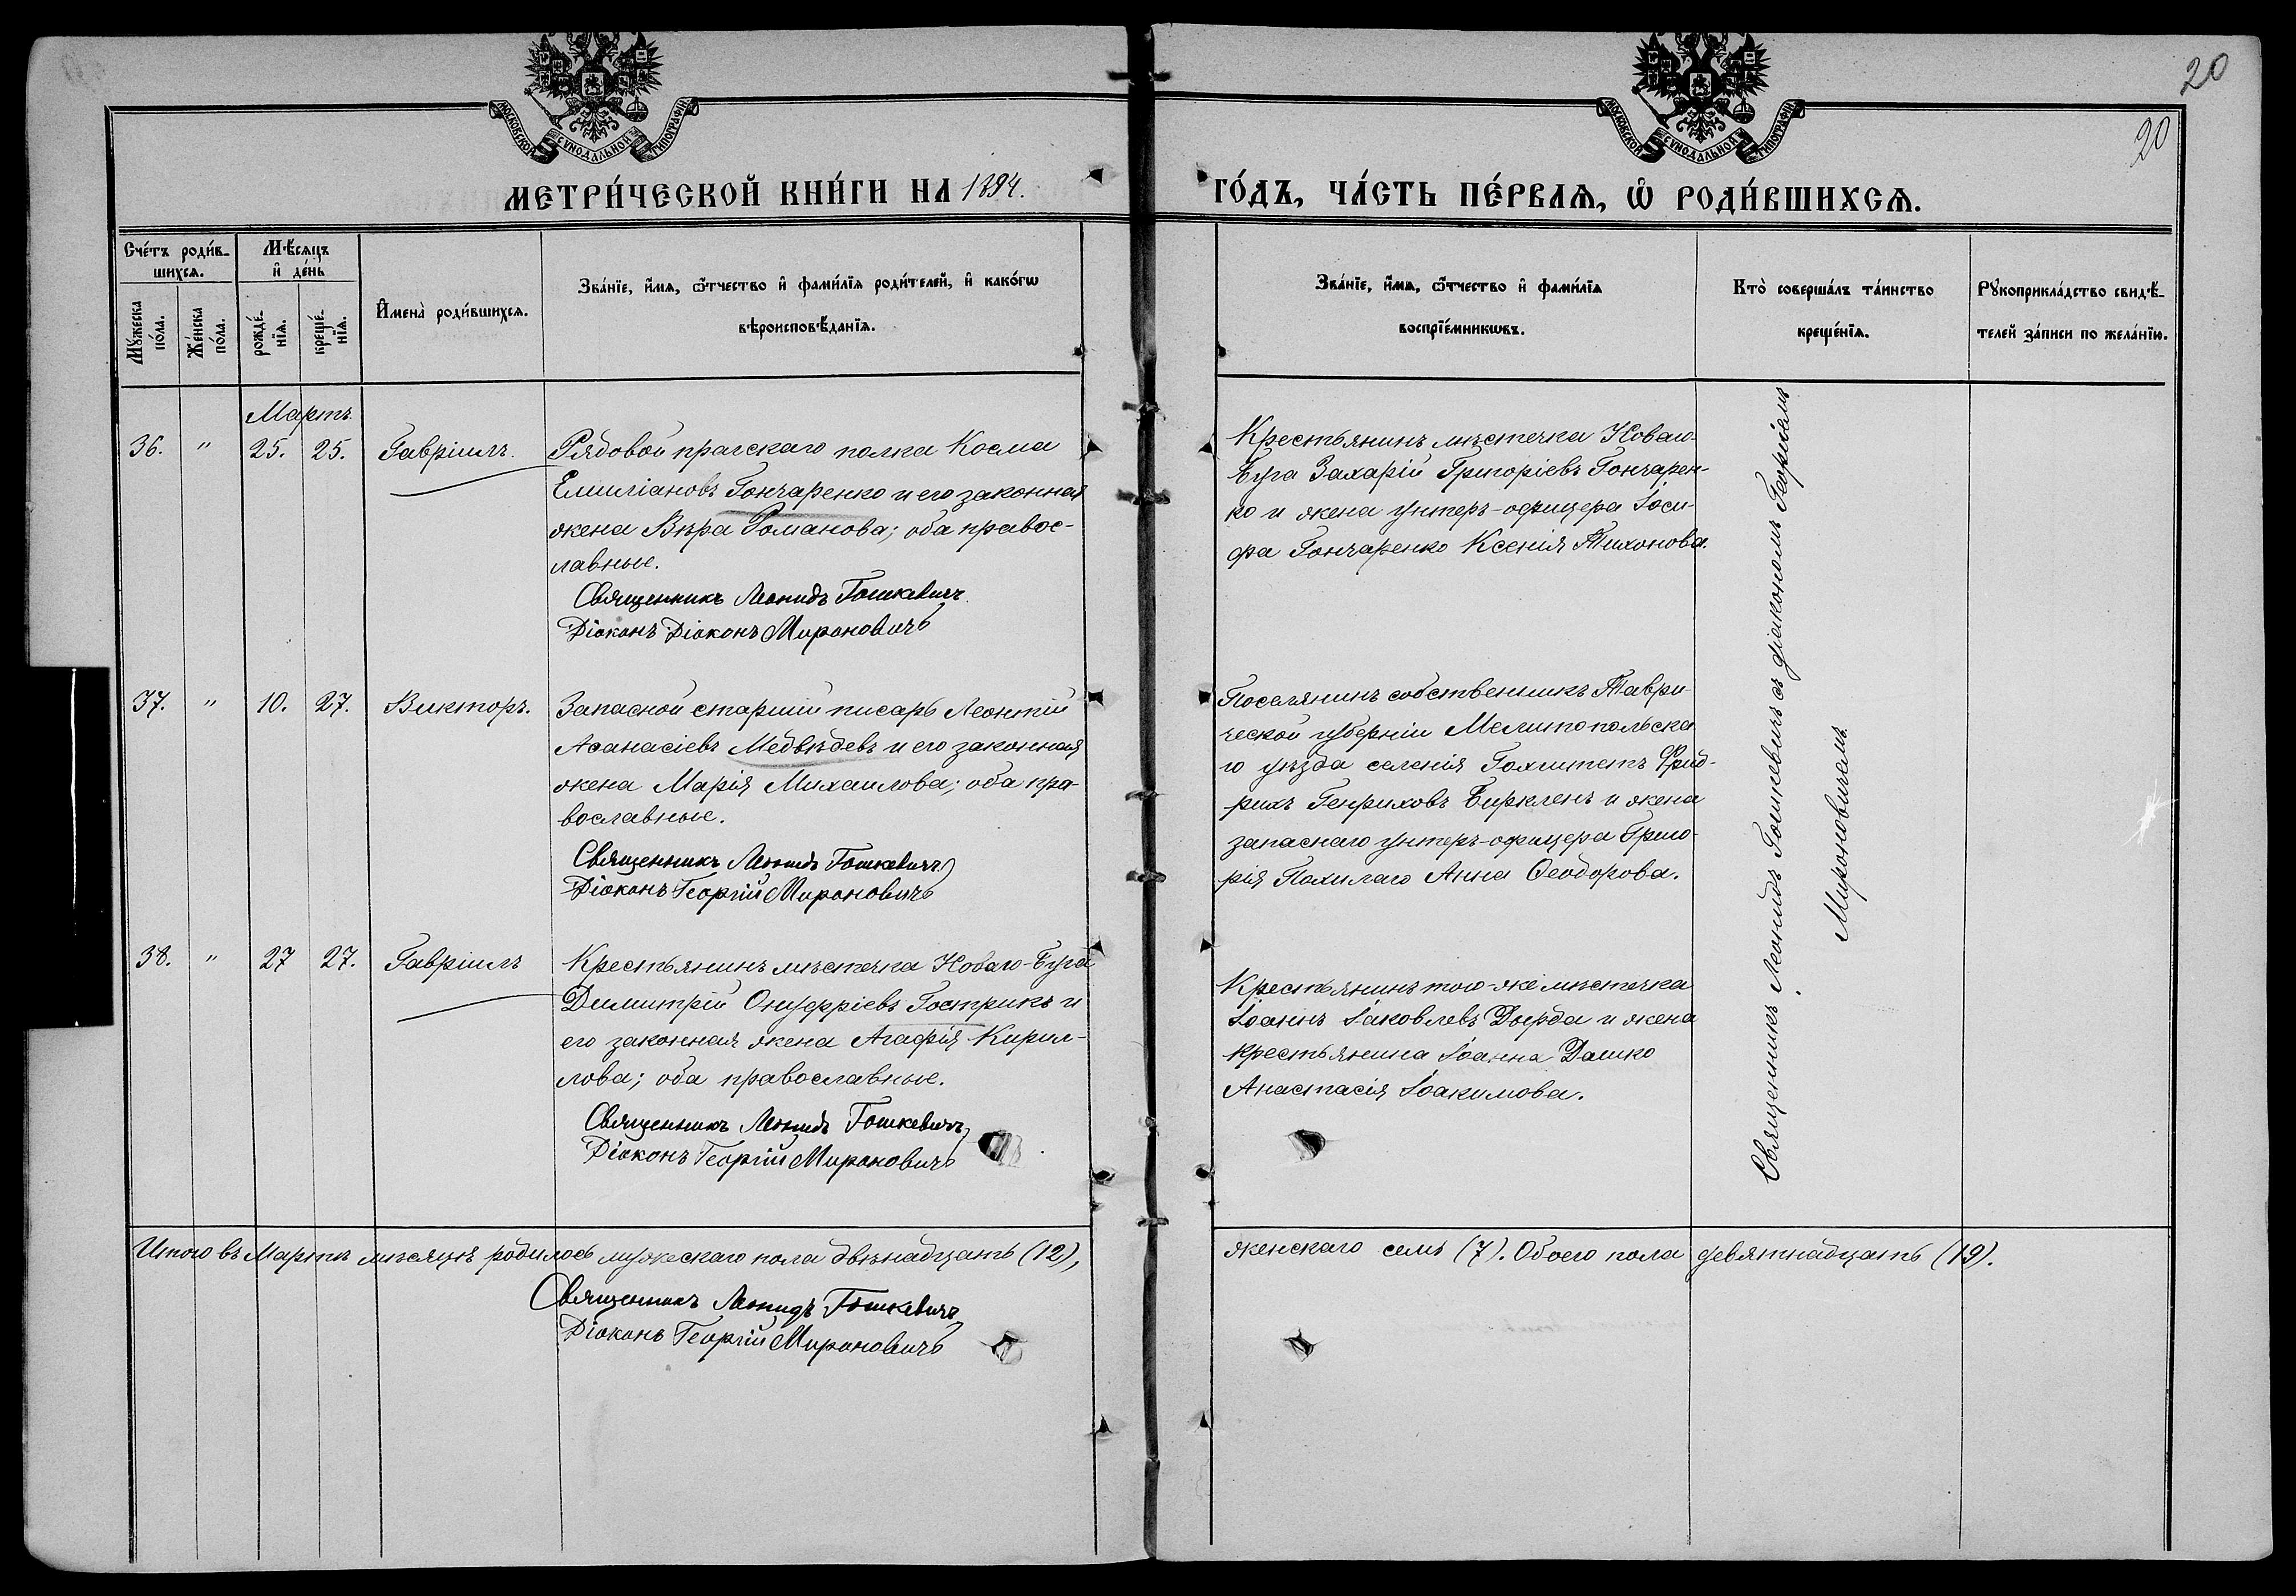 20
20
МОСКОВСКОЙ СѴНОДАЛЬНОЙ ТИПОГРАФІИ
МОСКОВСКОЙ СѴНОДАЛЬНОЙ ТИПОГРАФІИ
МЕТРИ́ЧЕСКОЙ КНИ́ГИ НА 1894. ГО́ДЪ, ЧА́СТЬ ПЕ́РВАѦ, Ѡ҆ РОДИ́ВШИХСѦ.
Сче́тъ роди́в-
шихсѧ.
Мѣ́сѧцъ
и҆ де́нь
Мꙋ́жеска
по́ла.
Же́нска
по́ла.
рожде́-
нїѧ.
креще́-
нїѧ.
И҆мена̀ роди́вшихсѧ.
Зва́нїе, и҆́мѧ, ѻ҆́тчество и҆ фами́лїѧ роди́телей, и҆ како́гѡ
вѣроисповѣ́данїѧ.
Зва́нїе, и҆́мѧ, ѻ҆́тчество и҆ фами́лїѧ
воспрїе́мникѡвъ.
Кто̀ соверша́лъ та́инство
креще́нїѧ.
Рꙋкоприкла́дство свидѣ́-
телей за́писи по жела́нїю.
Мартъ.
36. " 25. 25. Гавріилъ.
Рядовой прагскаго полка Косма
Емиліановъ Гончаренко и его законная
жена Вѣра Романова; оба правос-
лавные.
Священникъ Леонидъ Гошкевичъ
Діаконъ Діаконъ Мироновичъ
Крестьянинъ мѣстечка Новаго-
Буга Захарій Григоріевъ Гончарен-
ко и жена унтеръ-офицера Іоси-
фа Гончаренко Ксенія Тихонова.
37. " 10. 27. Викторъ.
Запасной старшій писарь Леонтій
Аѳанасіевъ Медвѣдевъ и его законная
жена Марія Михаилова; оба пра-
вославные.
Священникъ Леонидъ Гошкевичъ
Діаконъ Георгій Мироновичъ
Поселянинъ собственникъ Таври-
ческой губерніи Мелитопольска
го уѣзда селенія Гохштетъ Фрид-
рихъ Генриховъ Бирклепъ и жена
запаснаго унтеръ-офицера Григо-
рія Похилаго Анна Ѳеодорова.
38. " 27 27. Гавріилъ
Крестьянинъ мѣстечка Новаго-Буга
Димитрій Онуфріевъ Гострикъ и
его законная жена Агафія Кирил-
лова; оба православные.
Священникъ Леонидъ Гошкевичъ
Діаконъ Георгій Мироновичъ
Крестьянинъ того-же мѣстечка
Іоаннъ Іаковлевъ Дырда и жена
крестьянина Іоанна Дашко
Анастасія Іоакимова.
Священникъ Леонидъ Гошкевичъ съ діакономъ Георгіемъ
Мироновичемъ
Итого въ Мартѣ мѣсяцѣ родилось мужескаго пола двѣнадцать (12), женскаго семь (7). Обоего пола девятнадцать (19).
Священникъ Леонидъ Гошкевичъ
Діаконъ Георгій Мироновичъ